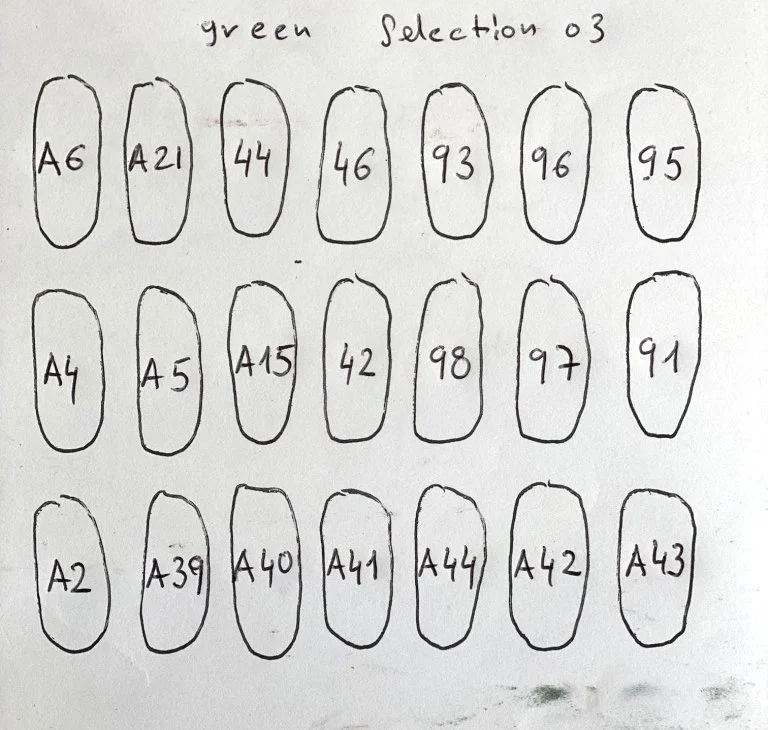 green Selection 03
A6 A21 44 46 93 96 95
A4 A5 A15 42 98 97 91
A2 A39 A40 A41 A44 A42 A43